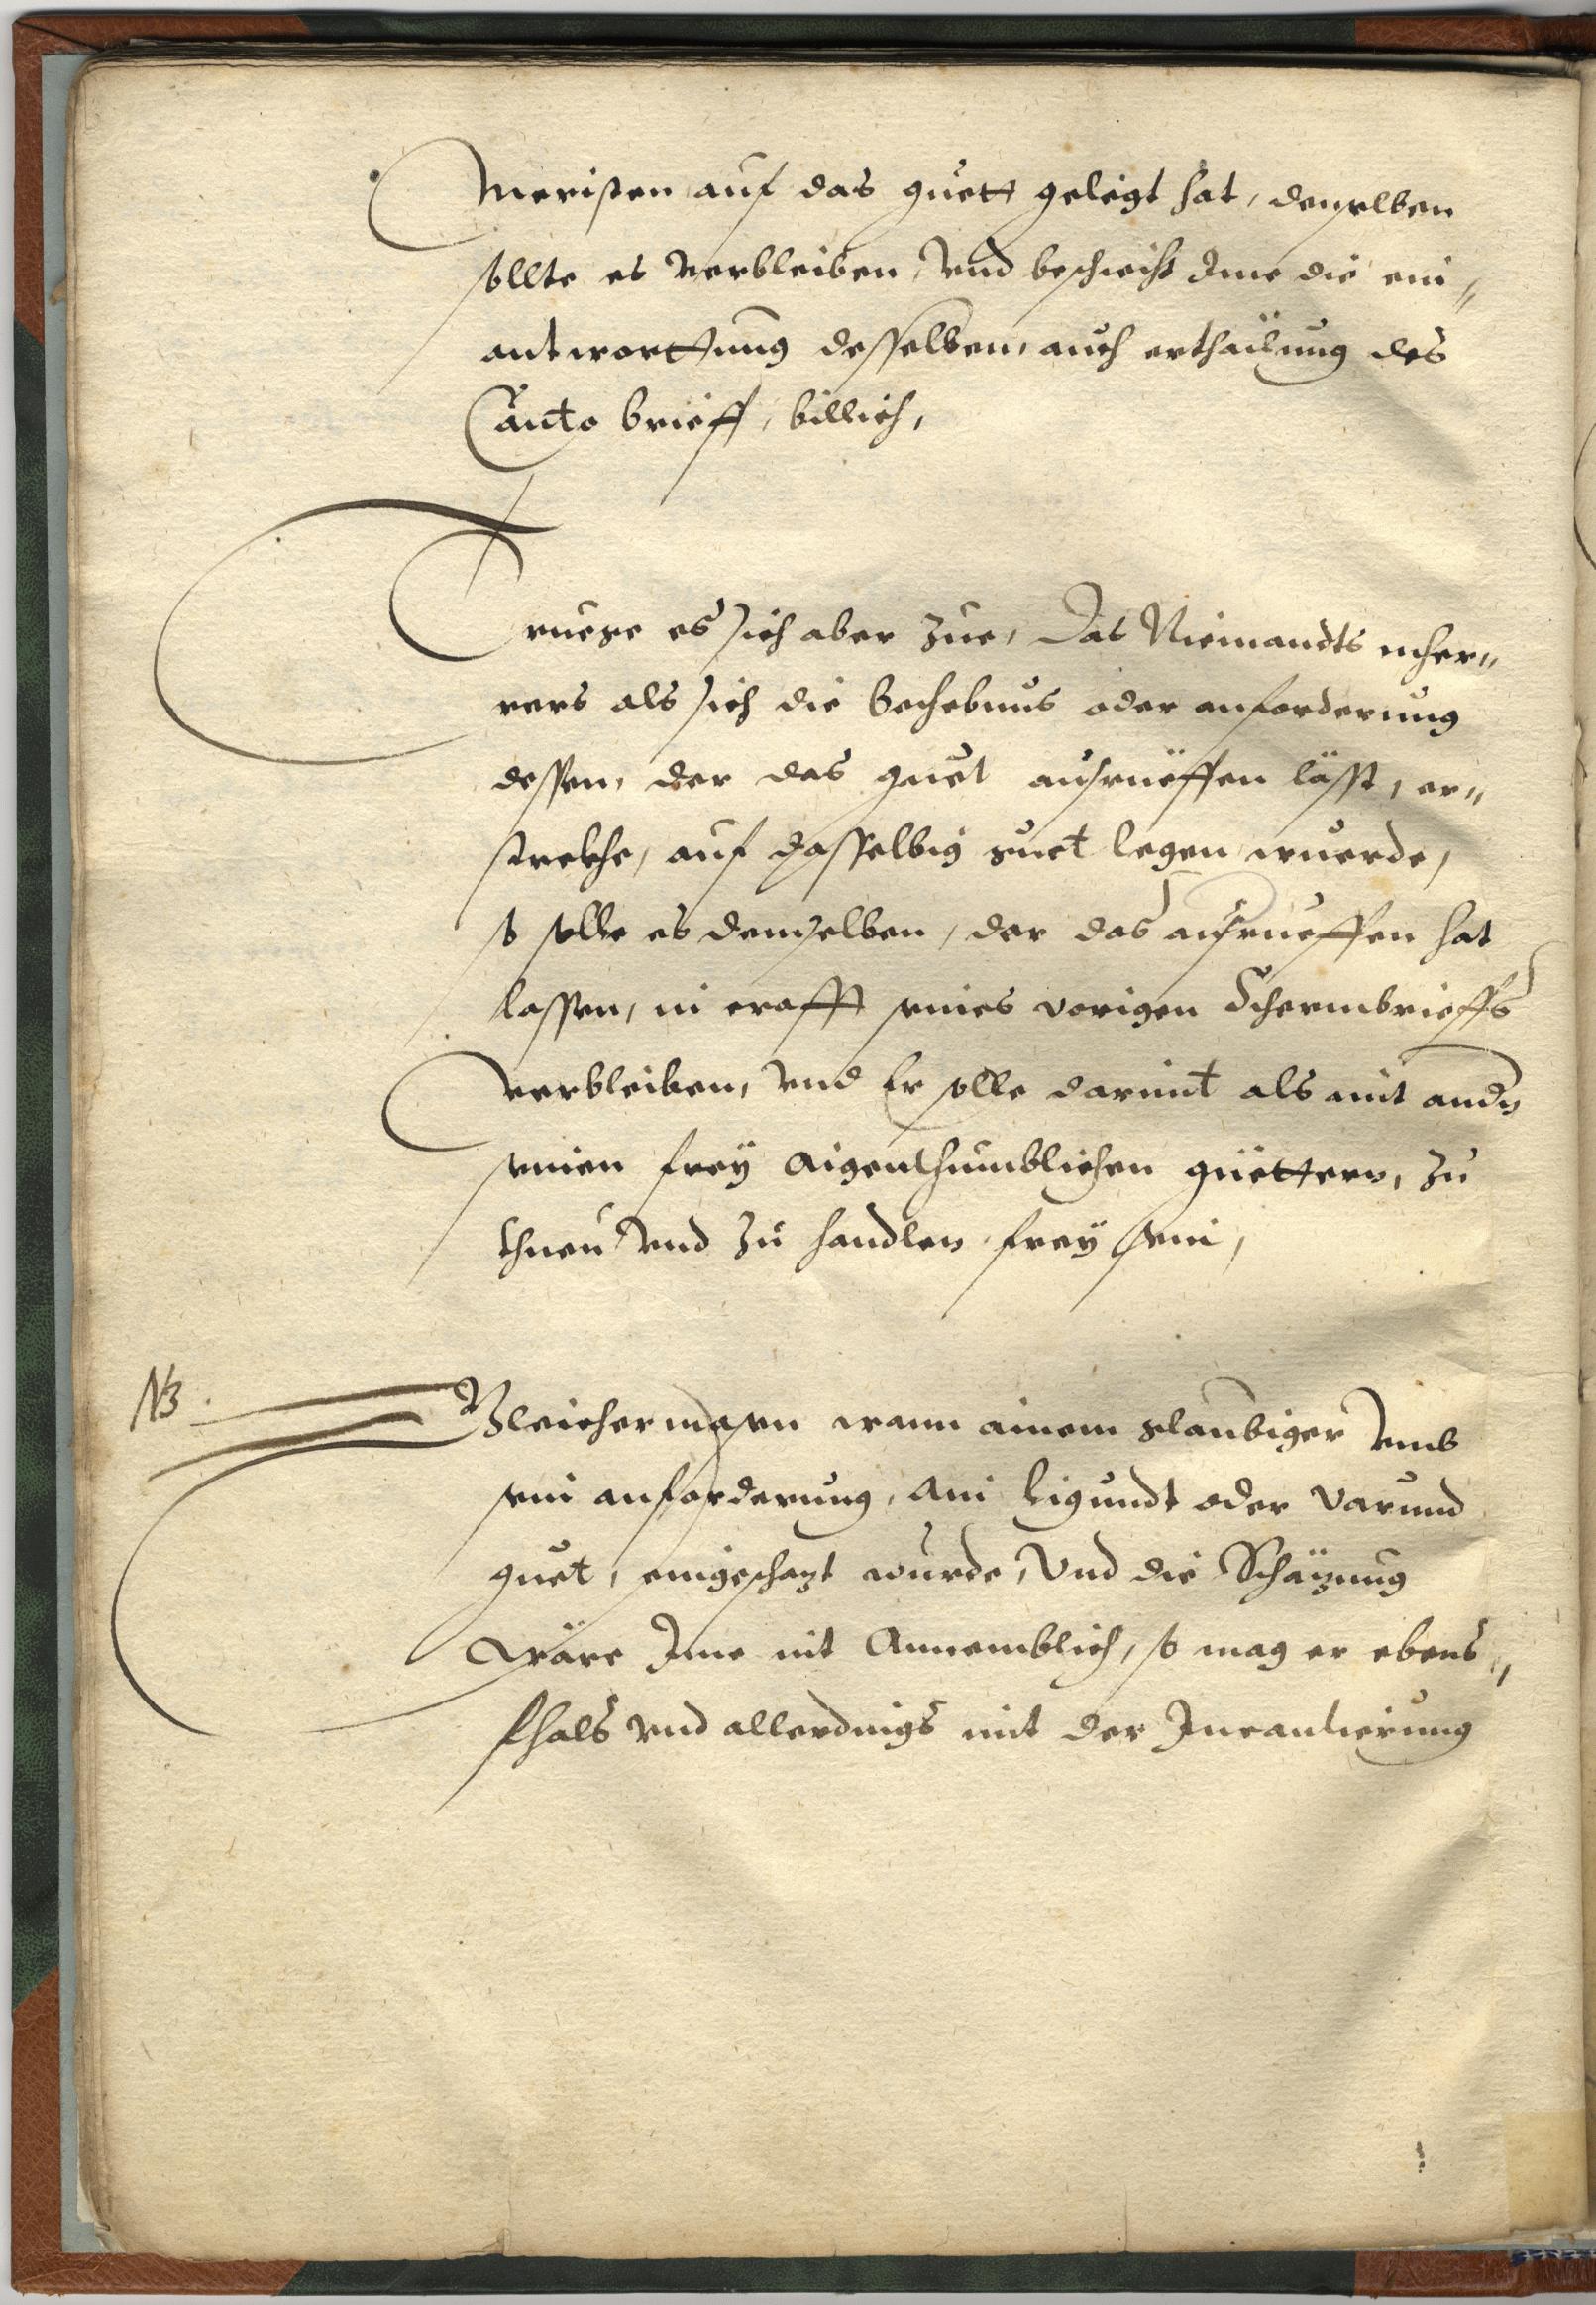 meristen auf das guett gelegt hat, demselben
sollte es verbleiben, vnd beschicht Ime die ein-
antworttung desselben, auch erthailung des
Canto brieff, billich,
Truege es sich aber zue, Das Niemandts meher-
rers als sich die Behebnus oder anforderung
dessen, der das guet ausrueffen lässt, er-
strekhe, auf dasselbig guet legen wuerde,
so solle es demselben, der das ausrueffen hat
lassen, in crafft seines vorigen Schermbrieffs
verbleiben, vnd Er solle darmit als mit andern
seinen frey aigenthumblichen guettern, zu
thuen vnd zu handlen frey sein,
NB.
Gleichermassen wann ainem glaubiger vmb
sein anforderung, ain ligundt oder varund
guet, eingeschazt wurde, Vnd die Schäzung
wäre Ime nit Annemblich, so mag er ebens-
fhals vnd allerdings mit der Incantierung